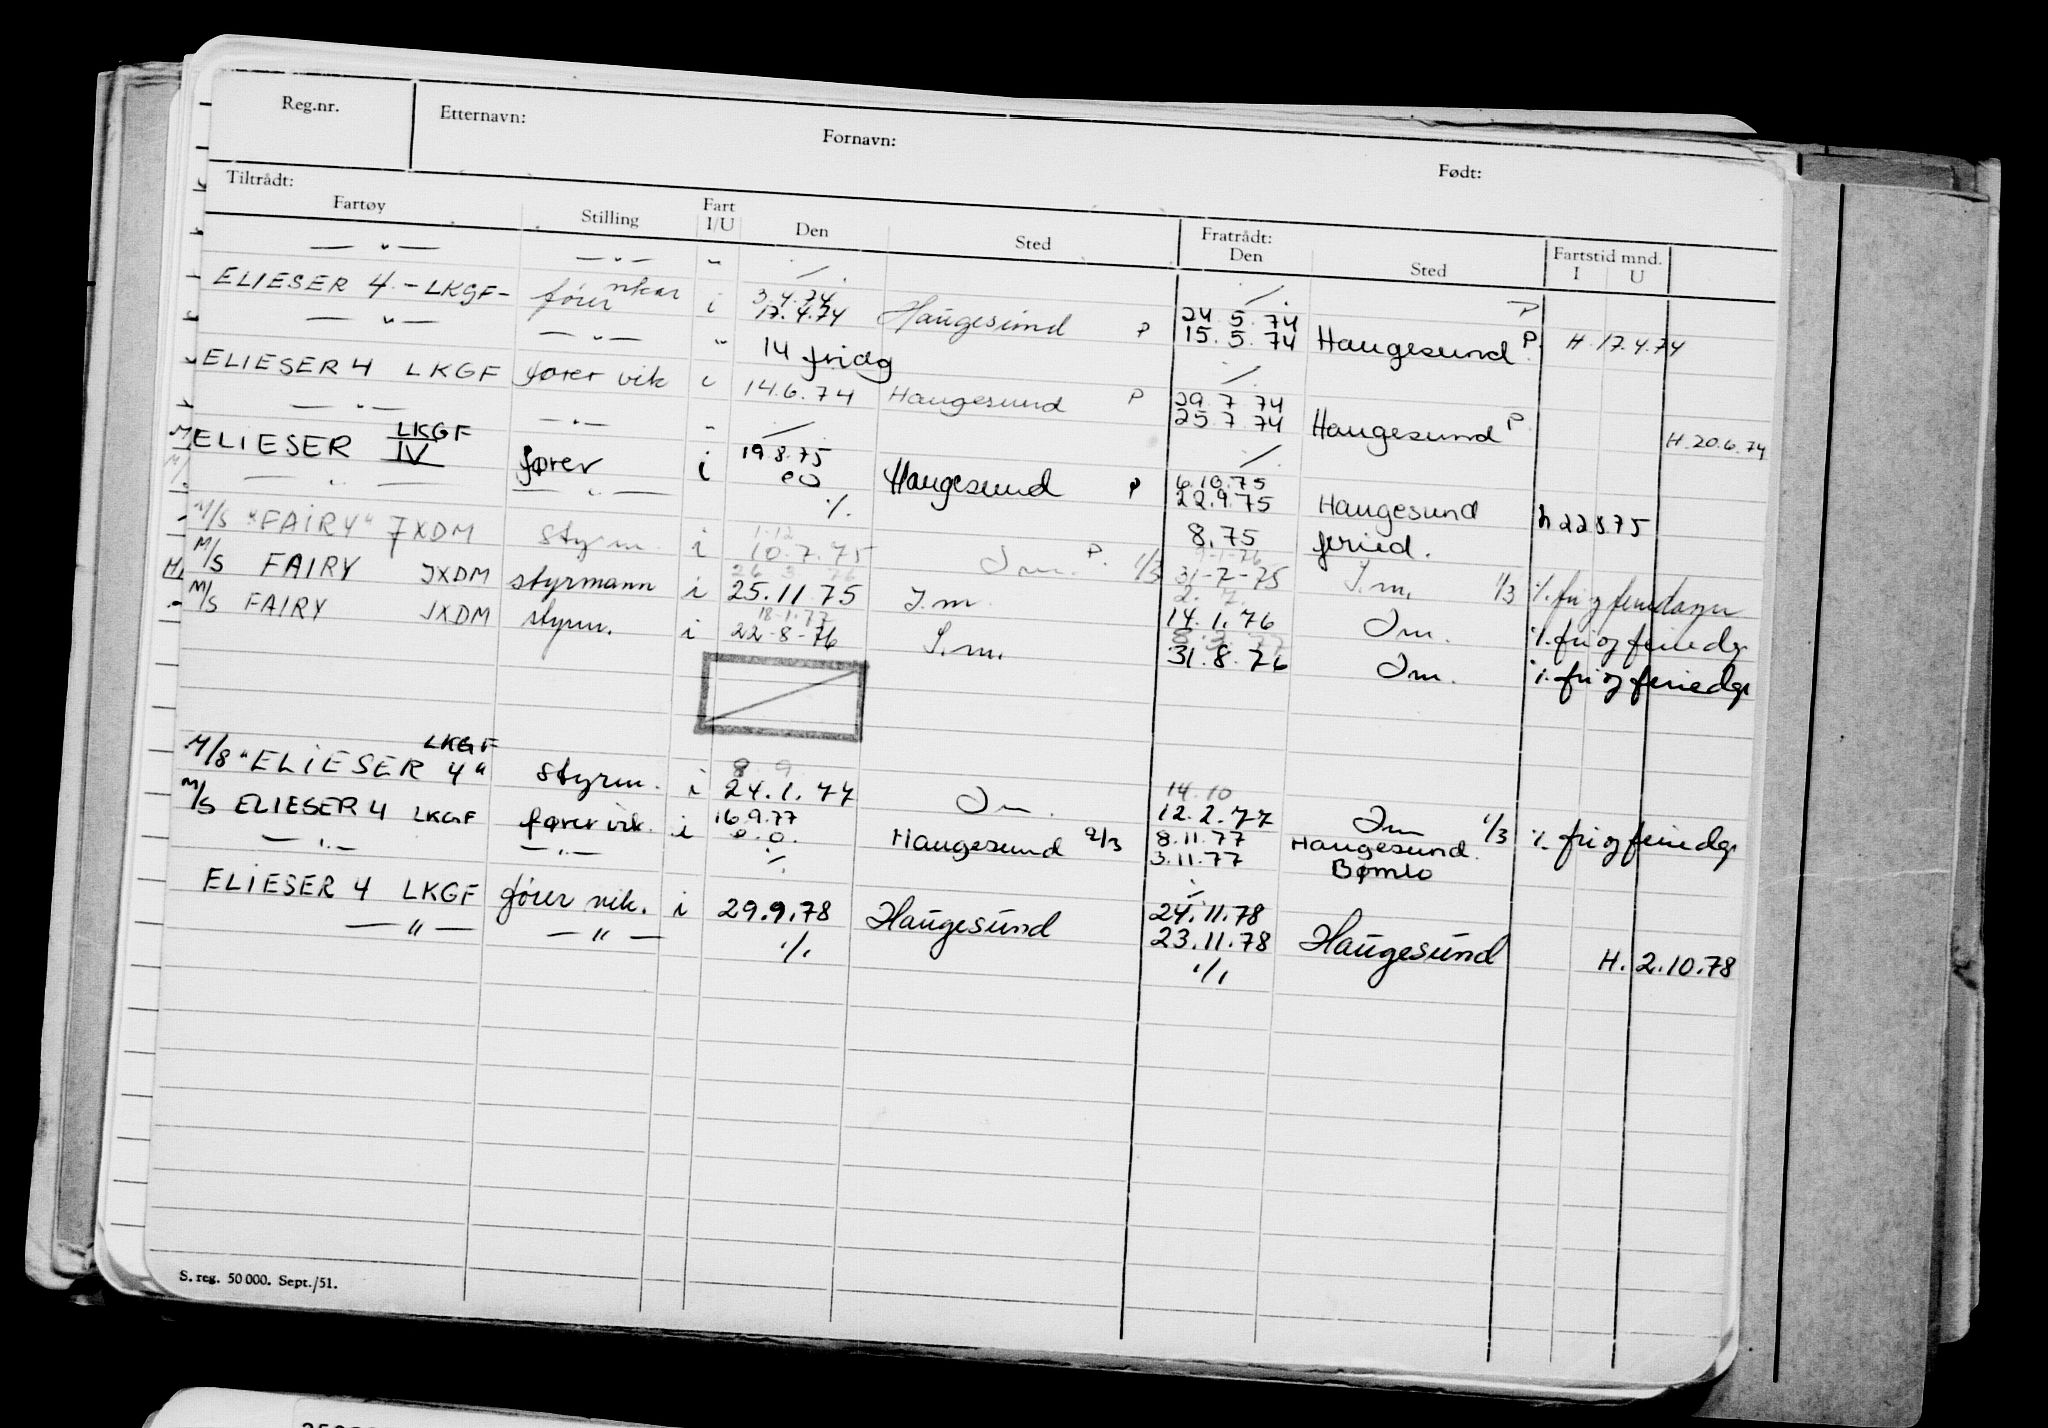 Reg.nr. Etternavn: Fornavn: Født:
Tiltrådt: Fratrådt:
Fartøy Stilling Fart I/U Den Sted Den Sted Fartstid mnd. I U
— " — — " — " ./. ./. P
ELIESER 4 - LKGF - fører vikar i 3.4.74 Haugesund P 24.5.74
— " — — " — " 17.4.74 15.5.74 Haugesund P. H. 17.4.74
14 fridg ./.
ELIESER 4 LKGF fører vik i 14.6.74 Haugesund P 29.7.74
— " — — " — - ./. 25.7.74 Haugesund P H. 20.6.74
ELIESER LKGF IV fører i 19.8.75 Haugesund P 6.10.75
— " — — " — ./. 22.9.75 Haugesund h 22 8 75
8.75 feried.
M/S "FAIRY" JXDM styrm. i 1-12 10.7.75 Im. P. 1/3 9-1-76 31-7-75 I.m. 1/3 ./. fri og feriedager
M/S FAIRY JXDM styrmann i 25.11 75 I.m 2. 7. 14.1.76 Im. ./. fri og feriedgr
M/S FAIRY JXDM styrm. i 18-1.77 22-8-76 I.m. 31.8.76 Im. ./. fri og feriedgr
M/S "ELIESER 4" LKGF styrm. i 8 9 24.1.77 Im. 14.10 12.2.77 Im 1/3 ./. fri og feriedgr
M/S ELIESER 4 LKGF fører vik. i 16.9.77 Haugesund 2/3 8.11.77 Haugesund.
— " — — " — ./. 3.11.77 Bømlo
./.
ELIESER 4 LKGF fører vik. i 29.9.78 Haugesund 24.11.78
— " — — " — ./. 23.11.78 Haugesund H. 2.10.78
./.
S. reg. 50 000. Sept./51.